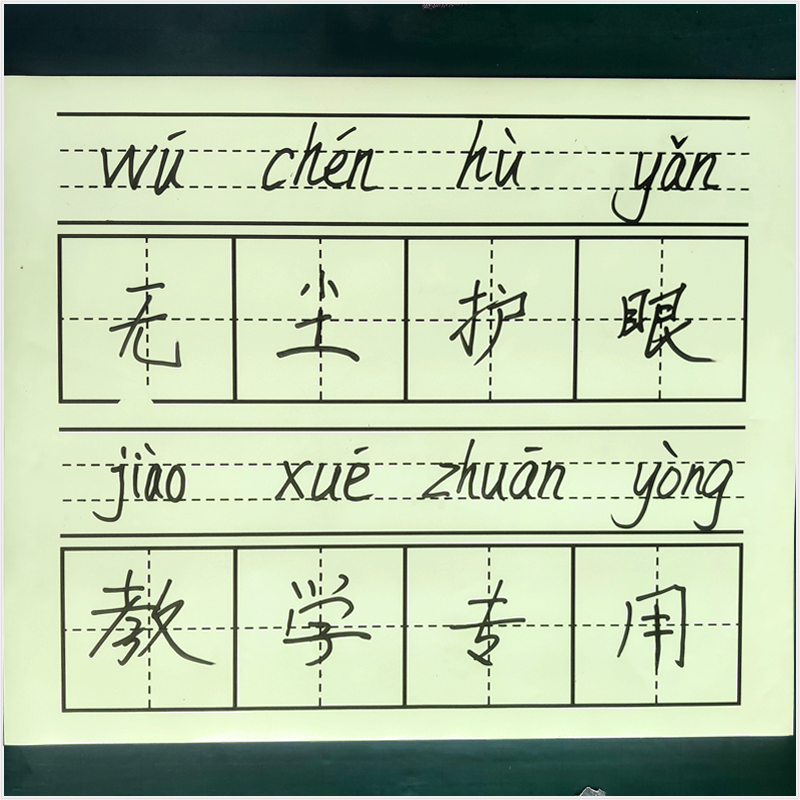 wú chén hù yǎn
无尘护眼
jiào xué zhuān yòng
教学专用